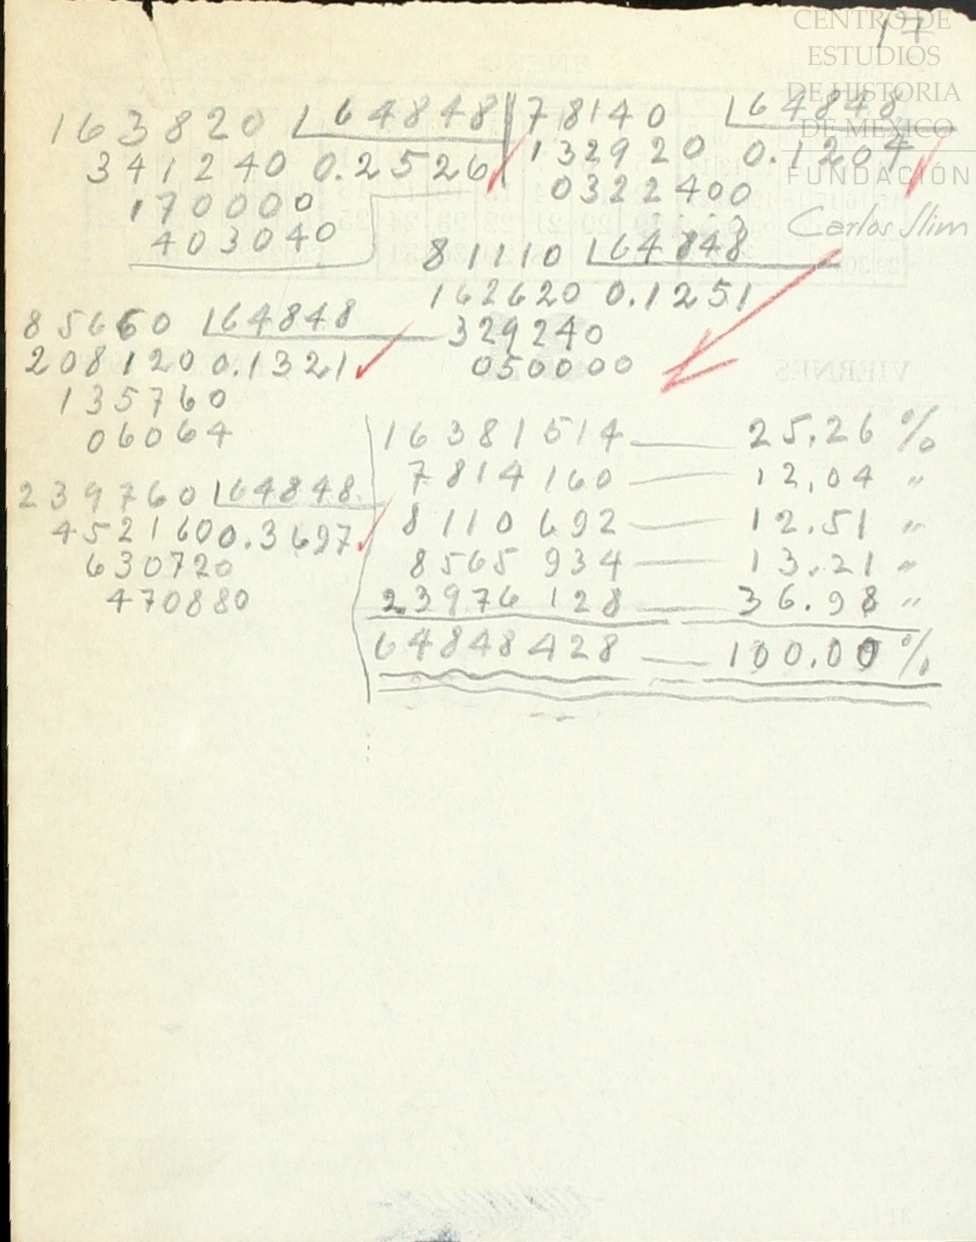 17
CENTRO DE
ESTUDIOS
DE HISTORIA
DE MÉXICO
FUNDACIÓN
Carlos Slim
163820 64848
341240 0.2526
170000
403040
78140 64848
132920 0.1204
0322400
81110 64848
162620 0.1251
329240
050000
85660 64848
208120 0.1321
135760
06064
239760 64848
452160 0.3697
630720
470880
16381514 — 25.26 %
7814160 — 12.04 "
8110692 — 12.51 "
8565934 — 13.21 "
23976128 — 36.98 "
64848428 — 100.00 %
VIERNES